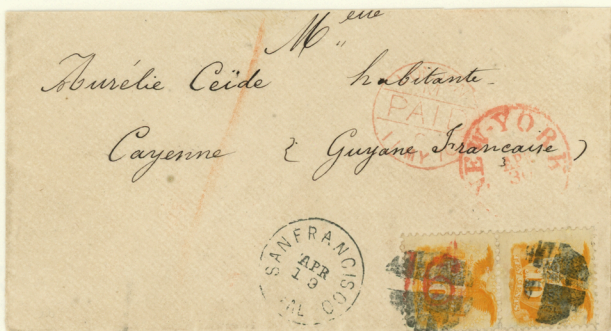 M"elle
Aurélie Ceïde habitante
Cayenne { Guyane Francaise )
PAID
NEW-YORK
SAN FRANCISCO
APR
19
CAL